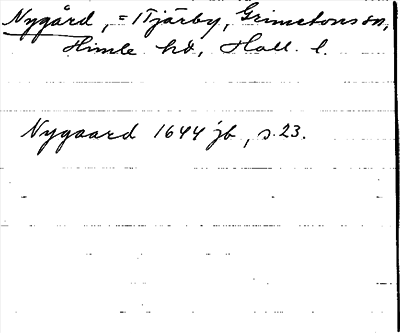 Nygård, = 1 Tjärby, Grimetons sn,
Himle hd, Hall. l.
Nygaard 1644 jb, s. 23.